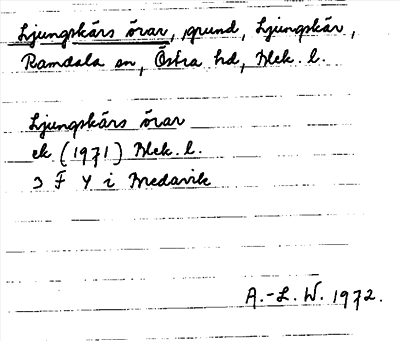 Ljungskärs örar, grund, Ljungskär,
Ramdala sn, Östra hd, Blek. l.
Ljungskärs örar
ek (1971) Blek. l.
3 F Y i Bredavik
A.-L. W. 1972.